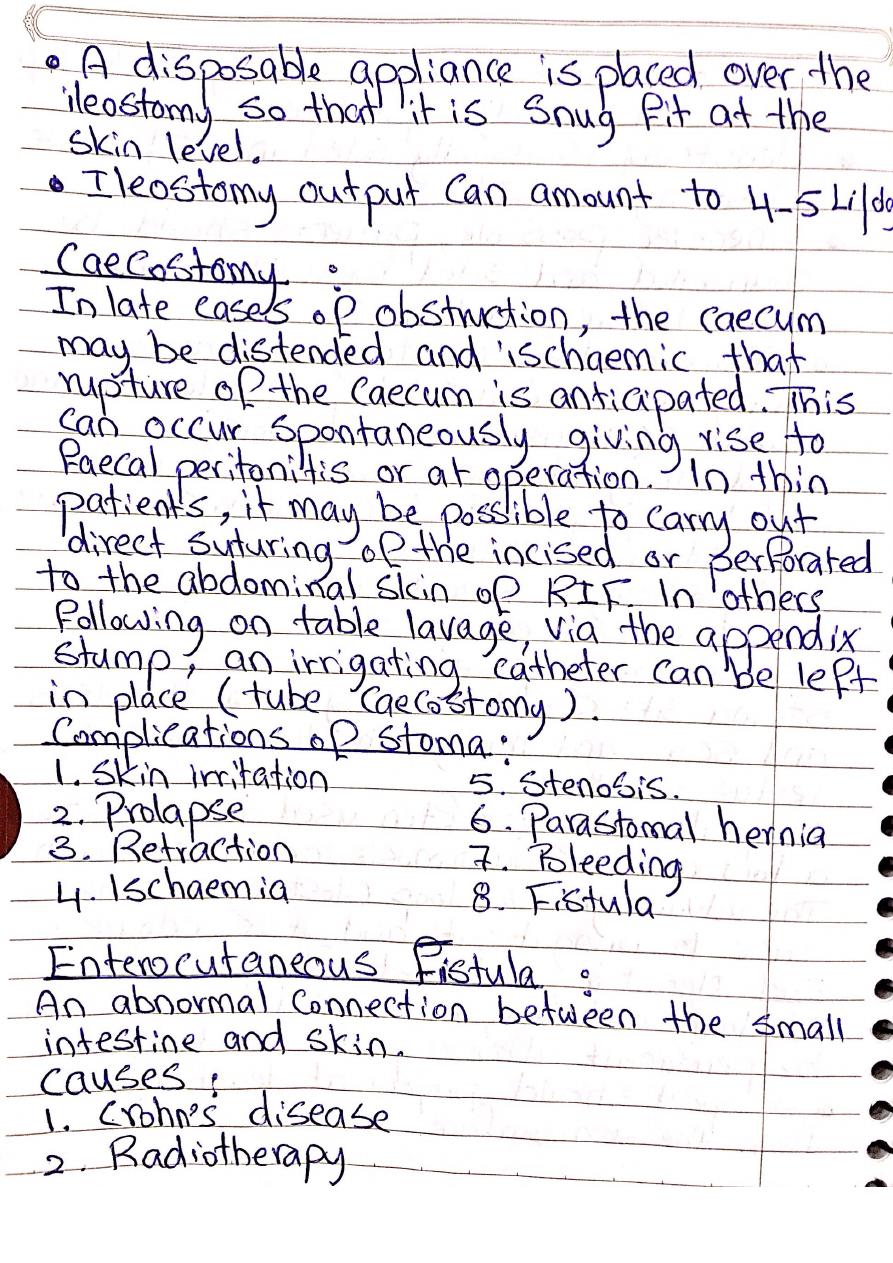 • A disposable appliance is placed over the
ileostomy so that it is snug fit at the
skin level.
• Ileostomy output can amount to 4-5 Li/da
Caecostomy :
In late cases of obstruction, the caecum
may be distended and ischaemic that
rupture of the caecum is anticipated. This
can occur spontaneously giving rise to
faecal peritonitis or at operation. In thin
patients, it may be possible to carry out
direct suturing of the incised or perforated
to the abdominal skin of RIF. In others
following on table lavage, via the appendix
stump, an irrigating catheter can be left
in place (tube caecostomy).
Complications of stoma:
1. Skin irritation
2. Prolapse
3. Retraction
4. Ischaemia
5. Stenosis.
6. Parastomal hernia
7. Bleeding
8. Fistula
Enterocutaneous Fistula :
An abnormal connection between the small
intestine and skin.
Causes :
1. Crohn's disease
2. Radiotherapy